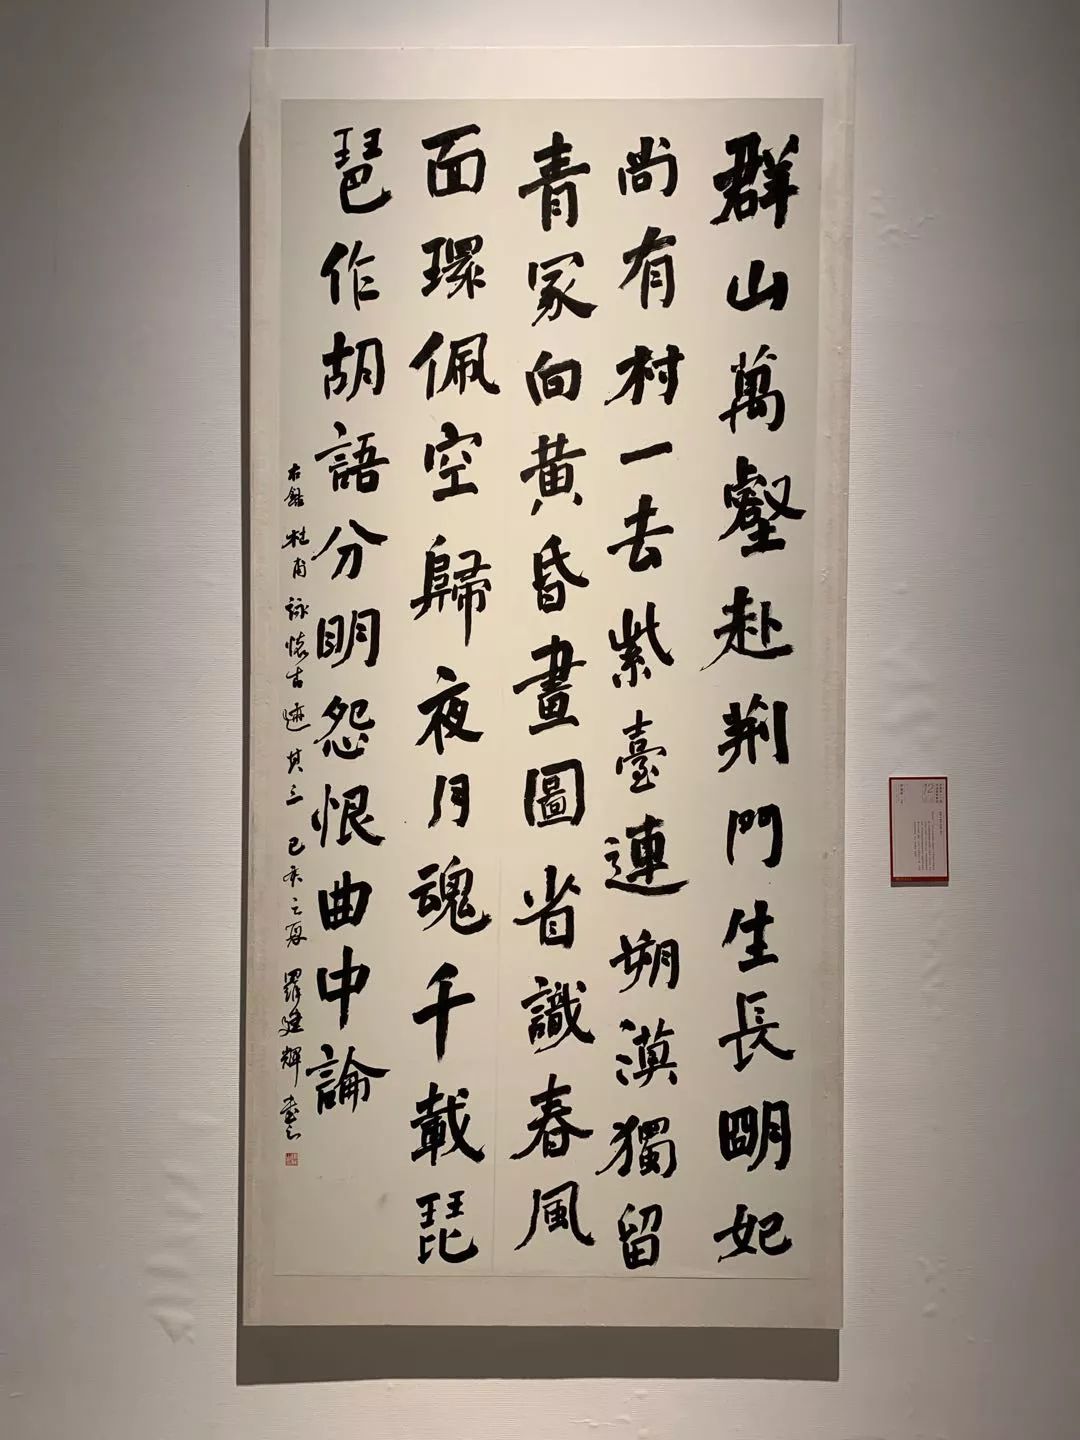 群山萬壑赴荆門生長明妃
尚有村一去紫臺連朔漠獨留
青冢向黄昏畫圖省識春風
面環佩空歸夜月魂千載琵
琶作胡語分明怨恨曲中論
右錄杜甫詠懷古迹其三己亥之夏羅建輝書